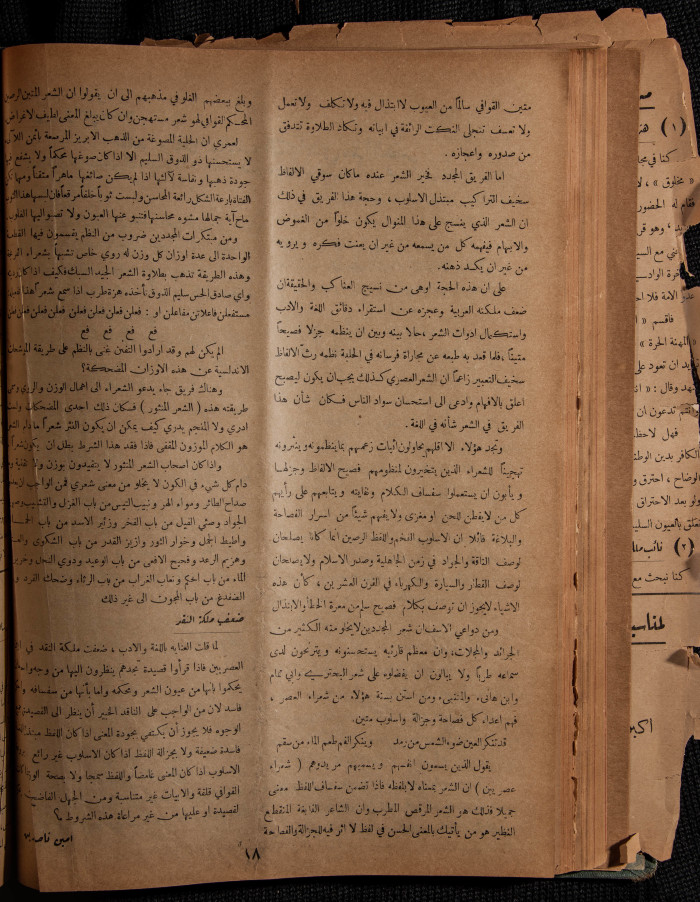 متين القوافي سالماً من العيوب لا ابتذال فيه ولا تكلف ولا تعمل
ولا تعسف تتجلى النكت الرائقة في ابياته وتكاد الطلاوة تتدفق
من صدوره واعجازه.
اما الفريق المجدد فخير الشعر عنده ما كان سوقي الالفاظ
سخيف التراكيب مبتذل الاسلوب ، وحجة هذا الفريق في ذلك
ان الشعر الذي ينسج على هذا المنوال يكون خلواً من الغموض
والابهام فيفهمه كل من يسمعه من غير ان يعنت فكره ويرويه
من غير ان يكد ذهنه.
على ان هذه الحجة اوهى من نسيج العناكب والحقيقة ان
ضعف ملكته العربية وعجزه عن استقراء دقائق اللغة والادب
واستكمال ادوات الشعر ، حالا بينه وبين ان ينظمه جزلا فصيحاً
متيناً ، فلما قعد به طبعه عن مجاراة فرسانه في الحلبة نظمه رث الالفاظ
سخيف التعبير زاعماً ان الشعر العصري كذلك يجب ان يكون ليصبح
اعلق بالافهام وادعى الى استحسان سواد الناس فكان شأن هذا
الفريق في الشعر شأنه في اللغة.
وتجد هؤلاء الا اقلهم يحاولون اثبات زعمهم بما ينظمونه وينثرونه
تهجيناً للشعراء الذين يتخيرون لمنظومهم فصيح الالفاظ وجزلها
ويأبون ان يستعملوا سفساف الكلام ونفايته ويتابعهم على رأيهم
كل من لا يفطن للحن او مغزى ولا يفهم شيئاً من اسرار الفصاحة
والبلاغة قائلا ان الاسلوب الفخم واللفظ الرصين انما كانا يصلحان
لوصف الناقة والجواد في زمن الجاهلية وصدر الاسلام ولا يصلحان
لوصف القطار والسيارة والكهرباء في القرن العشرين ، كأن هذه
الاشياء لا يجوز ان توصف بكلام فصيح سلم من معرة الخطأ والابتذال
ومن دواعي الاسف ان شعر المجددين لا يخلو منه الكثير من
الجرائد والمجلات ، وان معظم قارئيه يستحسنونه ويترنحون لدى
سماعه طرباً ولا يبالون ان يفضلوه على شعر البحتري وابي تمام
وابن هانىء والمتنبي ومن استن بسنة هؤلاء من شعراء العصر ،
فهم اعداء كل فصاحة وجزالة واسلوب متين.
قد تنكر العين ضوء الشمس من رمد وينكر الفم طعم الماء من سقم
يقول الذين يسمون انفسهم ويسميهم مريدوهم ( شعراء
عصريين ) ان الشعر بمعناه لا بلفظه فاذا تضمن سفساف اللفظ معنى
جميلا فذلك هو الشعر المرقص المطرب وان الشاعر النابغة المنقطع
النظير هو من يأتيك بالمعنى الحسن في لفظ لا اثر فيه للجزالة والفصاحة
وبلغ ببعضهم الغلو في مذهبهم الى ان يقولوا ان الشعر المتين
المحكم القوافي لهو شعر مستهجن وان كان يبلغ المعنى لطيف
لعمري ان الحلية المصوغة من الذهب الابريز المرصعة بأثمن
لا يستحسنها ذو الذوق السليم الا اذا كان صوغها محكماً ولا يشفع في
جودة ذهبها ونفاسة لآلئها اذا لم يكن صائغها ماهراً متقناً
الفتاة بارعة الشكل رائعة المحاسن ولبست ثوباً خلقاً مرقعاً فان لبسها هذا
ماح آية جمالها مشوه محاسنها فتنبو عنها العيون ولا تصبو اليها القلوب
ومن مبتكرات المجددين ضروب من النظم يقسمون فيها القصيدة
الواحدة الى عدة اوزان كل وزن له روي خاص تشبهاً بشعراء
وهذه الطريقة تذهب بطلاوة الشعر الجيد السبك فكيف اذا كان
واي صادق الحس سليم الذوق تأخذه هزة طرب اذا سمع شعراً
مستفعلن فاعلاتن مفاعلن او : فعلن فعلن فعلن فعلن فعلن
فع فع فع فع
الم يكن لهم وقد ارادوا التفنن غنى بالنظم على طريقة الموشحات
الاندلسية عن هذه الاوزان المضحكة؟
وهناك فريق جاء يدعو الشعراء الى اهمال الوزن والروي
طريقته هذه ( الشعر المنثور ) فكان ذلك احدى المضحكات ولست
ادري ولا المنجم يدري كيف يمكن ان يكون النثر شعراً ما دام
هو الكلام الموزون المقفى فاذا فقد هذا الشرط بطل ان يكون شعراً
واذا كان اصحاب الشعر المنثور لا يتقيدون بوزن ولا
دام كل شيء في الكون لا يخلو من معنى شعري فمن الواجب
صداح الطائر ومواء الهر ونبيب التيس من باب الغزل والتشبيب
الجواد وصئي الفيل من باب الفخر وزئير الاسد من باب
واطيط الجمل وخوار الثور وازيز القدر من باب الشكوى
وهزيم الرعد وفحيح الافعى من باب الوعيد ودوي النحل وخرير
الماء من باب الحكم ونعاب الغراب من باب الرثاء وضحك القرد
الضفدع من باب المجون الى غير ذلك
ضعف ملكة النقد
لما قلت العناية باللغة والادب ، ضعفت ملكة النقد في
العصريين فاذا قرأوا قصيدة تجدهم ينظرون اليها من وجه واحد
يحكموا بانها من عيون الشعر ومحكمه واما بأنها من سفسافه
فاسد لان من الواجب على الناقد الخبير أن ينظر الى القصيدة من
الوجوه فلا يجوز أن يكتفي بجودة المعنى اذا كان اللفظ مبتذلا
فاسدة ضعيفة ولا بجزالة اللفظ اذا كان الاسلوب غير رائع
الاسلوب اذا كان المعنى غامضاً واللفظ سمجا ولا بصحة
القوافي قلقة والابيات غير متناسبة ومن الجهل الفاضح
لقصيدة او عليها من غير مراعاة هذه الشروط ؟
امين ناصر
١٨
(١)
كنا في
« مخلوق » ،
فقام له الحضور
(٢) نائب
كنا نبحث مع